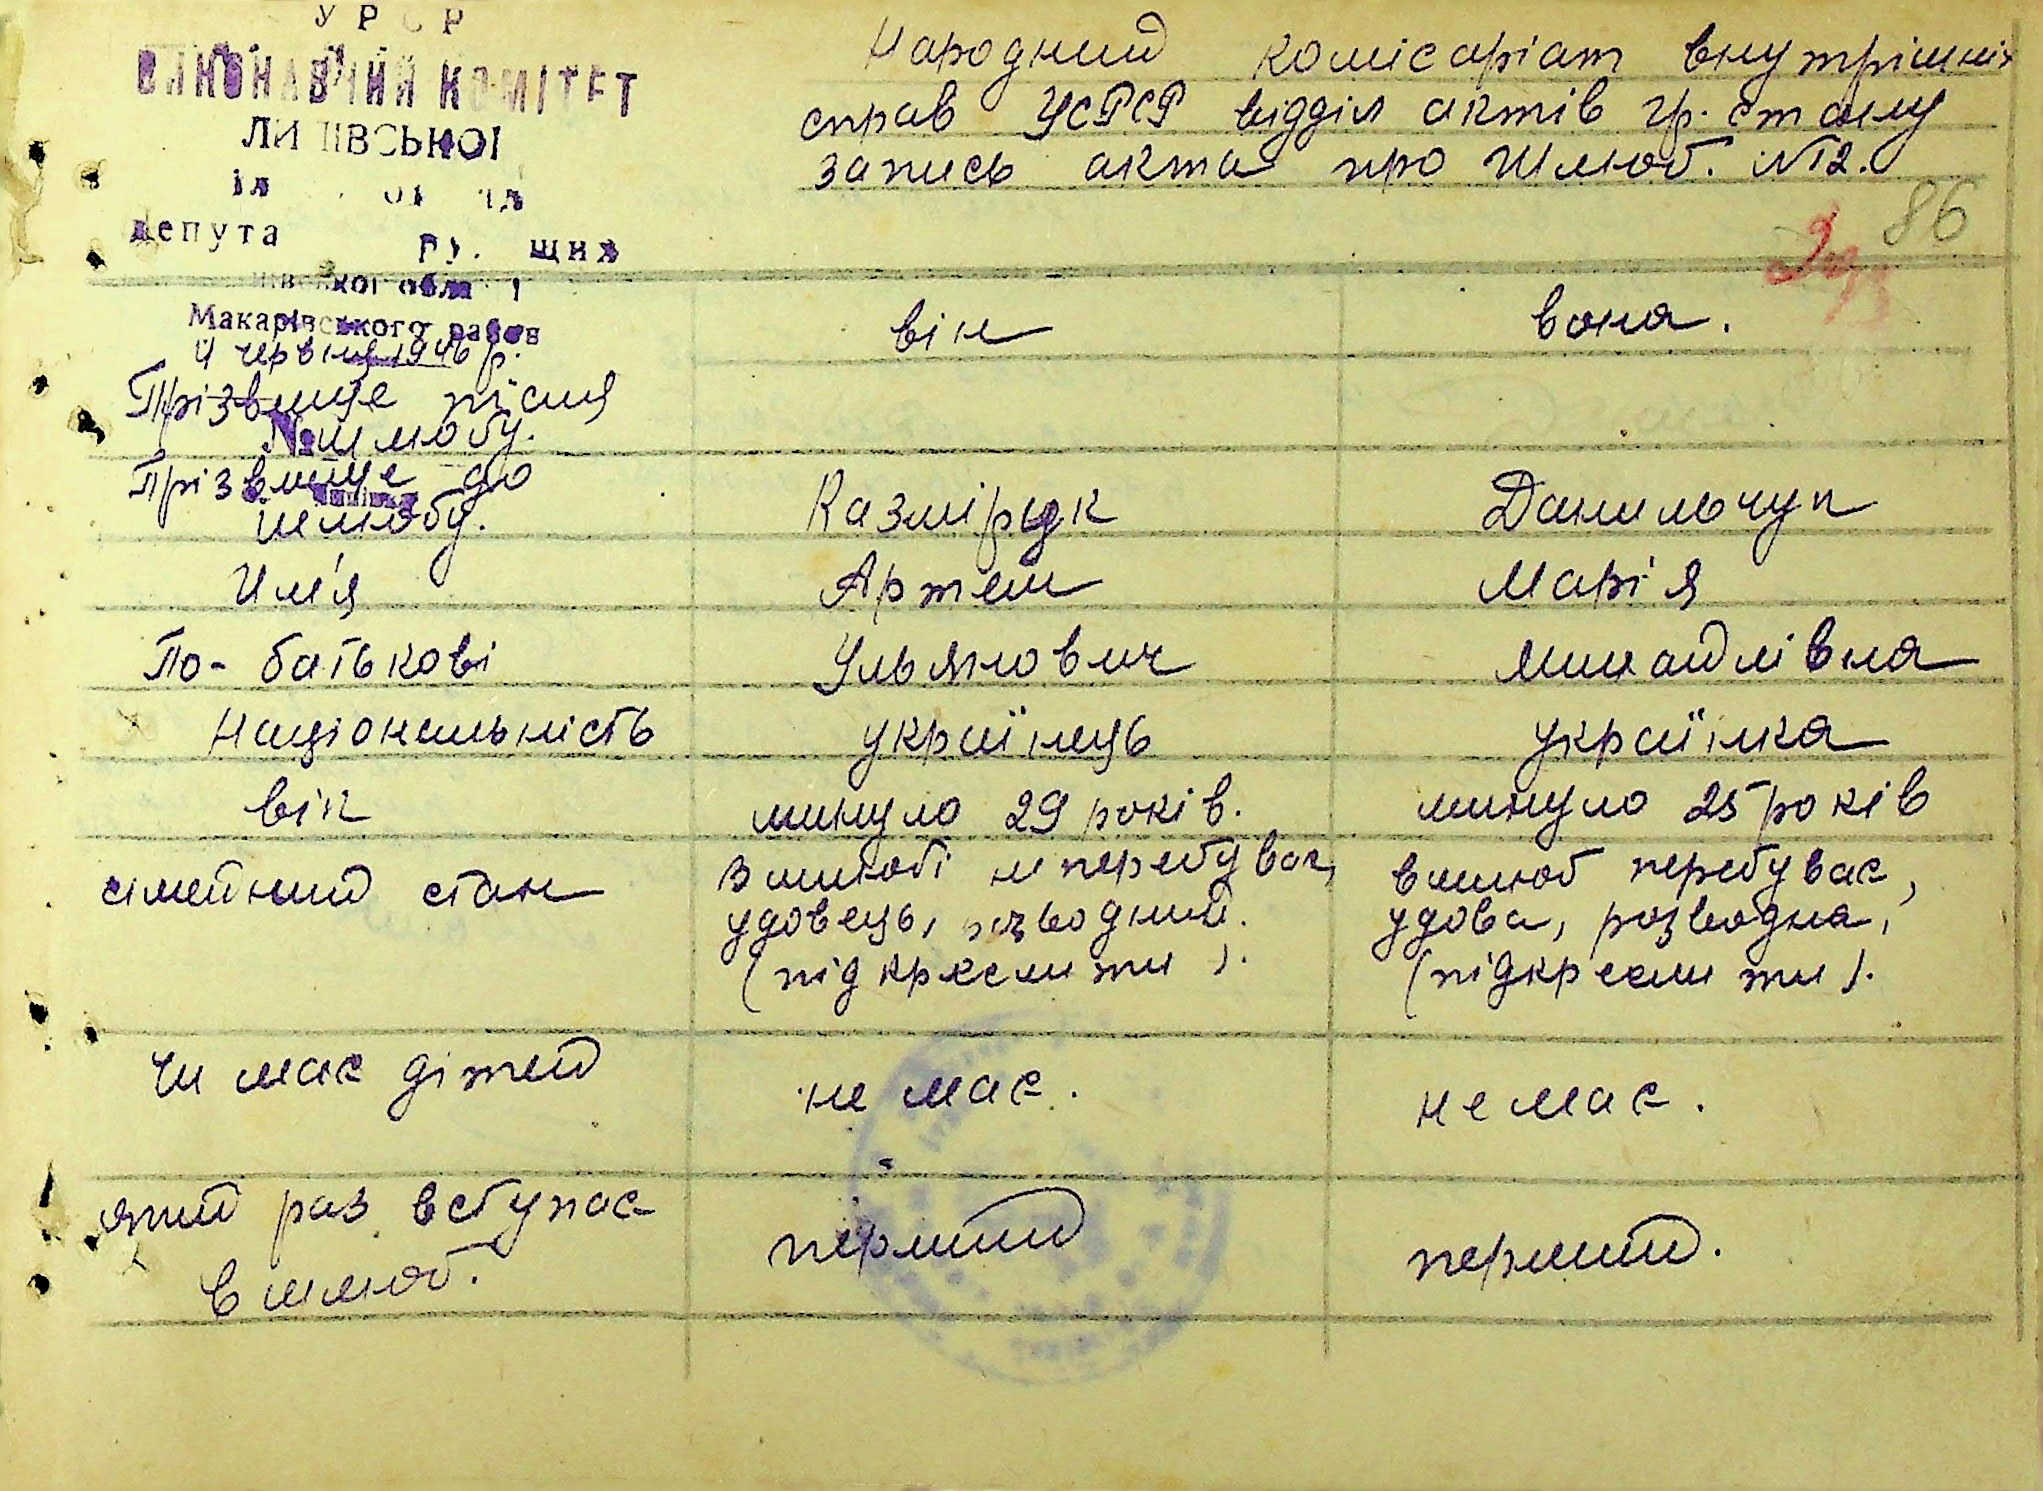 УРСР
ВИКОНАВЧИЙ КОМІТЕТ
депута
Макарівського района
4 червня 1946 р.
Народний комісаріат внутрішніх
справ УСРСР відділ актів гр. стану
запись акта про Шлюб. №12.
86
він вона.
Прізвище після
шлюбу.
Прізвище до
шлюбу. Казмірук Данильчук
Им'я Артем Марія
По-батькові Ульянович Михайлівна
Національність українець українка
вік минуло 29 років. минуло 25 років
сімейний стан
в шлюбі не перебував, в шлюб перебуває,
удовець, розводний. удова, розводна,
(підкреслити). (підкреслити).
Чи має дітей не має. не має.
який раз вступає
в шлюб. перший перший.